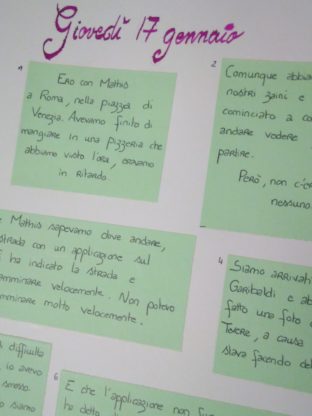 Giovedì 17 gennaio
1
Ero con Mathis
a Roma, nella piazza di
Venezia. Avevamo finito di
mangiare in una pizzeria che
abbiamo visto l'ora, eravamo
in Ritardo.
2
Comunque abbia
nostri zaini e
cominciato a co
andare vedere
partire.
Però, non c'er
nessuno
e Mathis sapevamo dove andare,
strada con un applicazione sul
i ha indicato la strada e
amminare velocemente. Non potevo
mminare molto velocemente.
4
Siamo arrivati
Garibaldi e ab
fatto una foto
Tevere, a causa
stava facendo del
difficoltà
io avevo
smesso.
siamo
6
E che l'applicazione non fun
ha detto